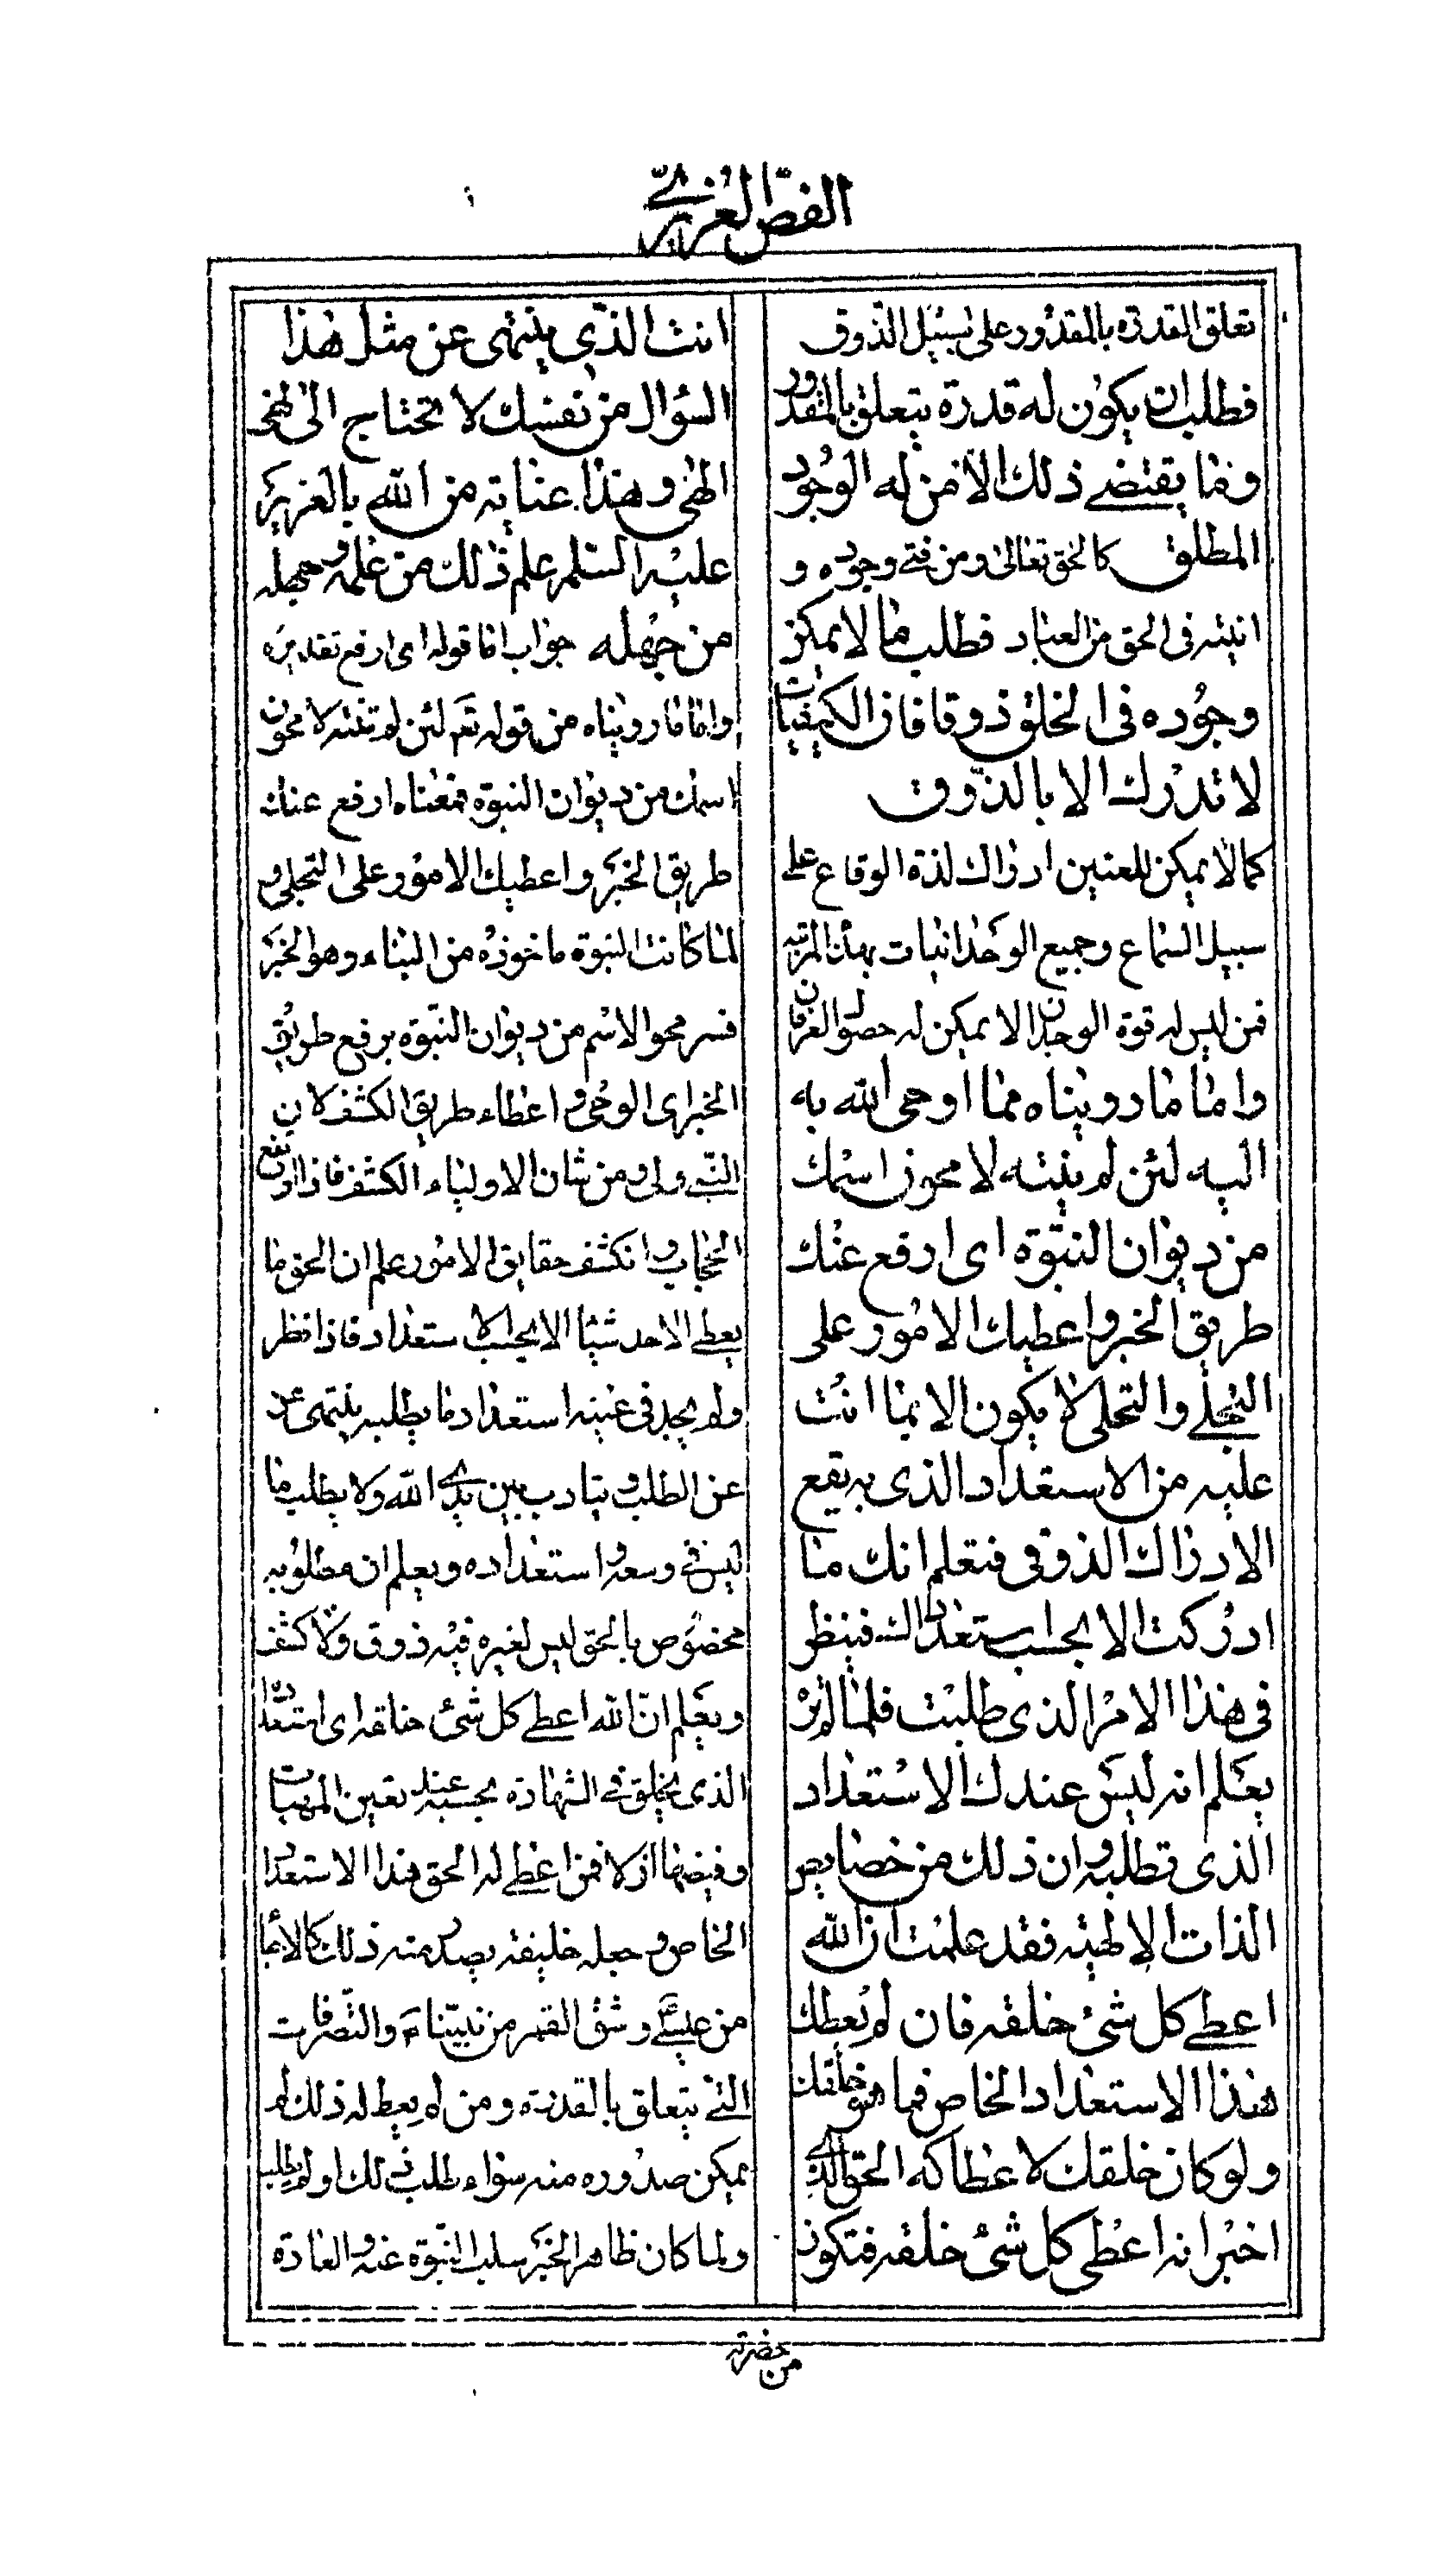 الفصّ العزيريّ
تعلق القدرة بالمقدور على سبيل الذّوق
فطلب ان يكون له قدرة يتعلق بالمقدور
وما يقتضى ذلك الا من له الوجود
المطلق كالحق تعالى ومن فنى وجوده و
انيته فى الحق من العباد فطلب ما لا يمكن
وجوده فى الخلق ذوقا فان الكيفيات
لا تدرك الا بالذّوق
كما لا يمكن للعنين ادراك لذة الوقاع على
سبيل السماع وجميع الوجدانيات بهذه المرتبه
فمن ليس له قوة الوجدان لا يمكن له حصول العرفان
واما ما رويناه مما اوحى الله به
اليه لئن لم ينته لا محون اسمك
من ديوان النبّوة اى ارفع عنك
طريق الخبر واعطيك الامور على
التجلى والتجلى لا يكون الا بما انت
عليه من الاستعداد الذى به يقع
الادراك الذوقى فتعلم انك ما
ادركت الا بحسب استعدادك فينظر
فى هذا الامر الذى طلبت فلما لم تره
يعلم انه ليس عندك الاستعداد
الذى تطلبه وان ذلك من خصايص
الذات الالهيته فقد علمت ان الله
اعطى كل شئ خلقه فان لم يعطك
هذا الاستعداد الخاص فما هو خلقك
ولو كان خلقك لا عطاكه الحق الذى
اخبر انه اعطى كل شئ خلقه فتكون
انت الذّى ينتهى عن مثل هذا
السؤال من نفسك لا تحتاج الى نهى
الهى وهذا عناية من الله بالعزير
عليه السلم علم ذلك من علمه وجهله
من جهله جواب اما قوله اى ارفع تقديره
واما ما رويناه من قوله تعم لئن لم تنته لا محون
اسمك من ديوان النبوّة فمعناه ارفع عنك
طريق الخبر واعطيك الامور على التجلى و
لما كانت النبوة ماخوذه من النباء وهو الخبر
فسر محو الاسم من ديوان النبّوة برفع طريق
الخبر اى الوحى واعطاء طريق الكشف لان
النبّى ولى ومن شان الاولياء الكشف فاذا ارتفع
الحجاب وانكشف حقايق الامور علم ان الحق ما
يعطى الاحد شيئا الا بحسب الاستعداد فاذا نظر
ولم يجد فى عينه استعداد ما يطلبه ينتهى
عن الطلب ويتادب بين يدى الله ولا يطلب ما
ليس فى وسعه واستعداده ويعلم ان مطلوبه
مخصوص بالحق ليس لغيره فيه ذوق ولا كشف
ويعلم انّ الله اعطى كل شئ خلقه اى استعداده
الذى يخلق فى الشهادة بحسبه عند تعين المهيات
وفيضها ازلا فمن اعطى له الحق هذا الاستعداد
الخاص وجعله خليفته يصدر منه ذلك كالاحيا
من عيسى وشق القمر من نبيّنا والتصّرفات
التى يتعلق بالقدرة ومن لم يعط له ذلك لم
يمكن صدوره منه سواء طلب ذلك او لم يطلب
ولما كان ظاهر الخبر سلب النبّوة عنه والعادة
من حضرته